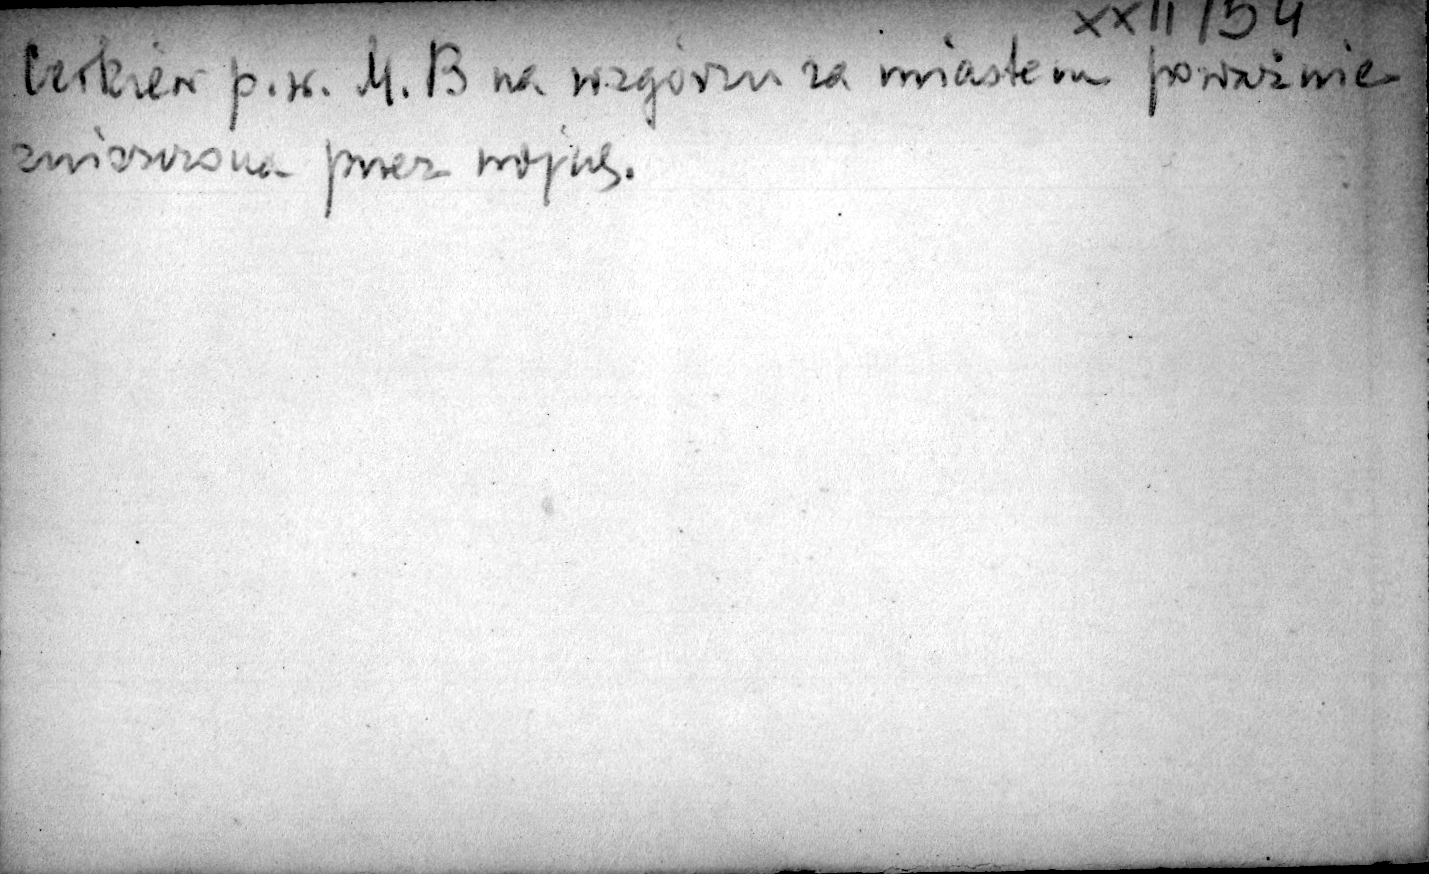 XXII/54
Cerkiew p.w. M.B na wzgórzu za miastem poważnie
zniszczona przez wojnę.